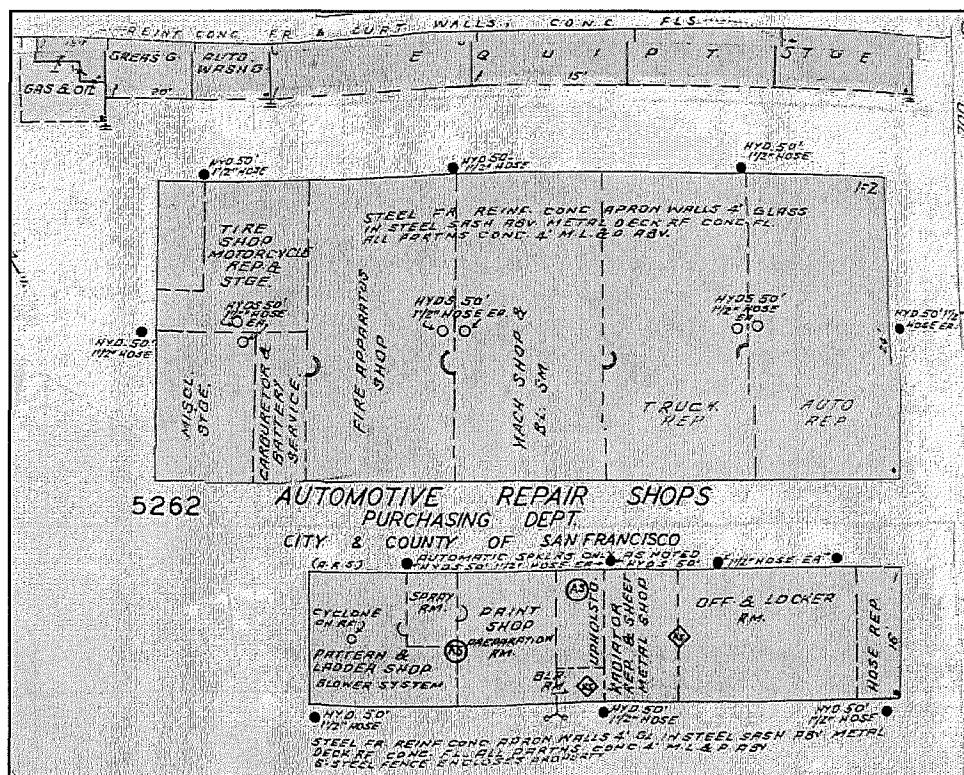 REINF CONC FR & CURT WALLS; CONC FLS
GREAS'G
AUTO
WASH'G
E Q U I P T. S T G E
GAS & OIL
20'
15'
HYD. 50'
1½" HOSE
HYD. 50'
1½" HOSE
HYD. 50'
1½" HOSE
1=2
STEEL FR REINF CONC APRON WALLS 4' GLASS
IN STEEL SASH ABV. METAL DECK RF CONC FL.
ALL PARTNS CONC 4' M.L.& P. ABV.
TIRE
SHOP
MOTORCYCLE
REP &
STGE.
HYDS 50'
1½" HOSE
EA.
HYDS 50'
1½" HOSE EA.
HYDS 50'
1½" HOSE
EA.
HYD. 50'
1½" HOSE
HYD 50' 1½"
HOSE EA.
MISCL.
STGE.
CARBURETOR &
BATTERY
SERVICE
FIRE APPARATUS
SHOP
MACH SHOP &
BL. SM.
TRUCK
REP
AUTO
REP
5262
AUTOMOTIVE REPAIR SHOPS
PURCHASING DEPT.
CITY & COUNTY OF SAN FRANCISCO
(A.R.S.)
AUTOMATIC SPKLRS ONLY AS NOTED
HYDS 50' 1½" HOSE EA
HYDS 50'
1½" HOSE EA
CYCLONE
ON RF.
SPRAY
RM.
PAINT
SHOP
PREPARATION
RM.
AS
AS
PATTERN &
LADDER SHOP
BLOWER SYSTEM
BLR
RM
UPHOLST'G
RADIATOR
REP & SHEET
METAL SHOP
OFF & LOCKER
RM.
HOSE REP
16'
HYD. 50'
1½" HOSE
HYD. 50'
1½" HOSE
HYD. 50'
1½" HOSE
STEEL FR REINF CONC APRON WALLS 4' GL IN STEEL SASH ABV METAL
DECK RF CONC FL. ALL PARTNS. CONC 4' M.L.& P ABV
6' STEEL FENCE ENCLOSES